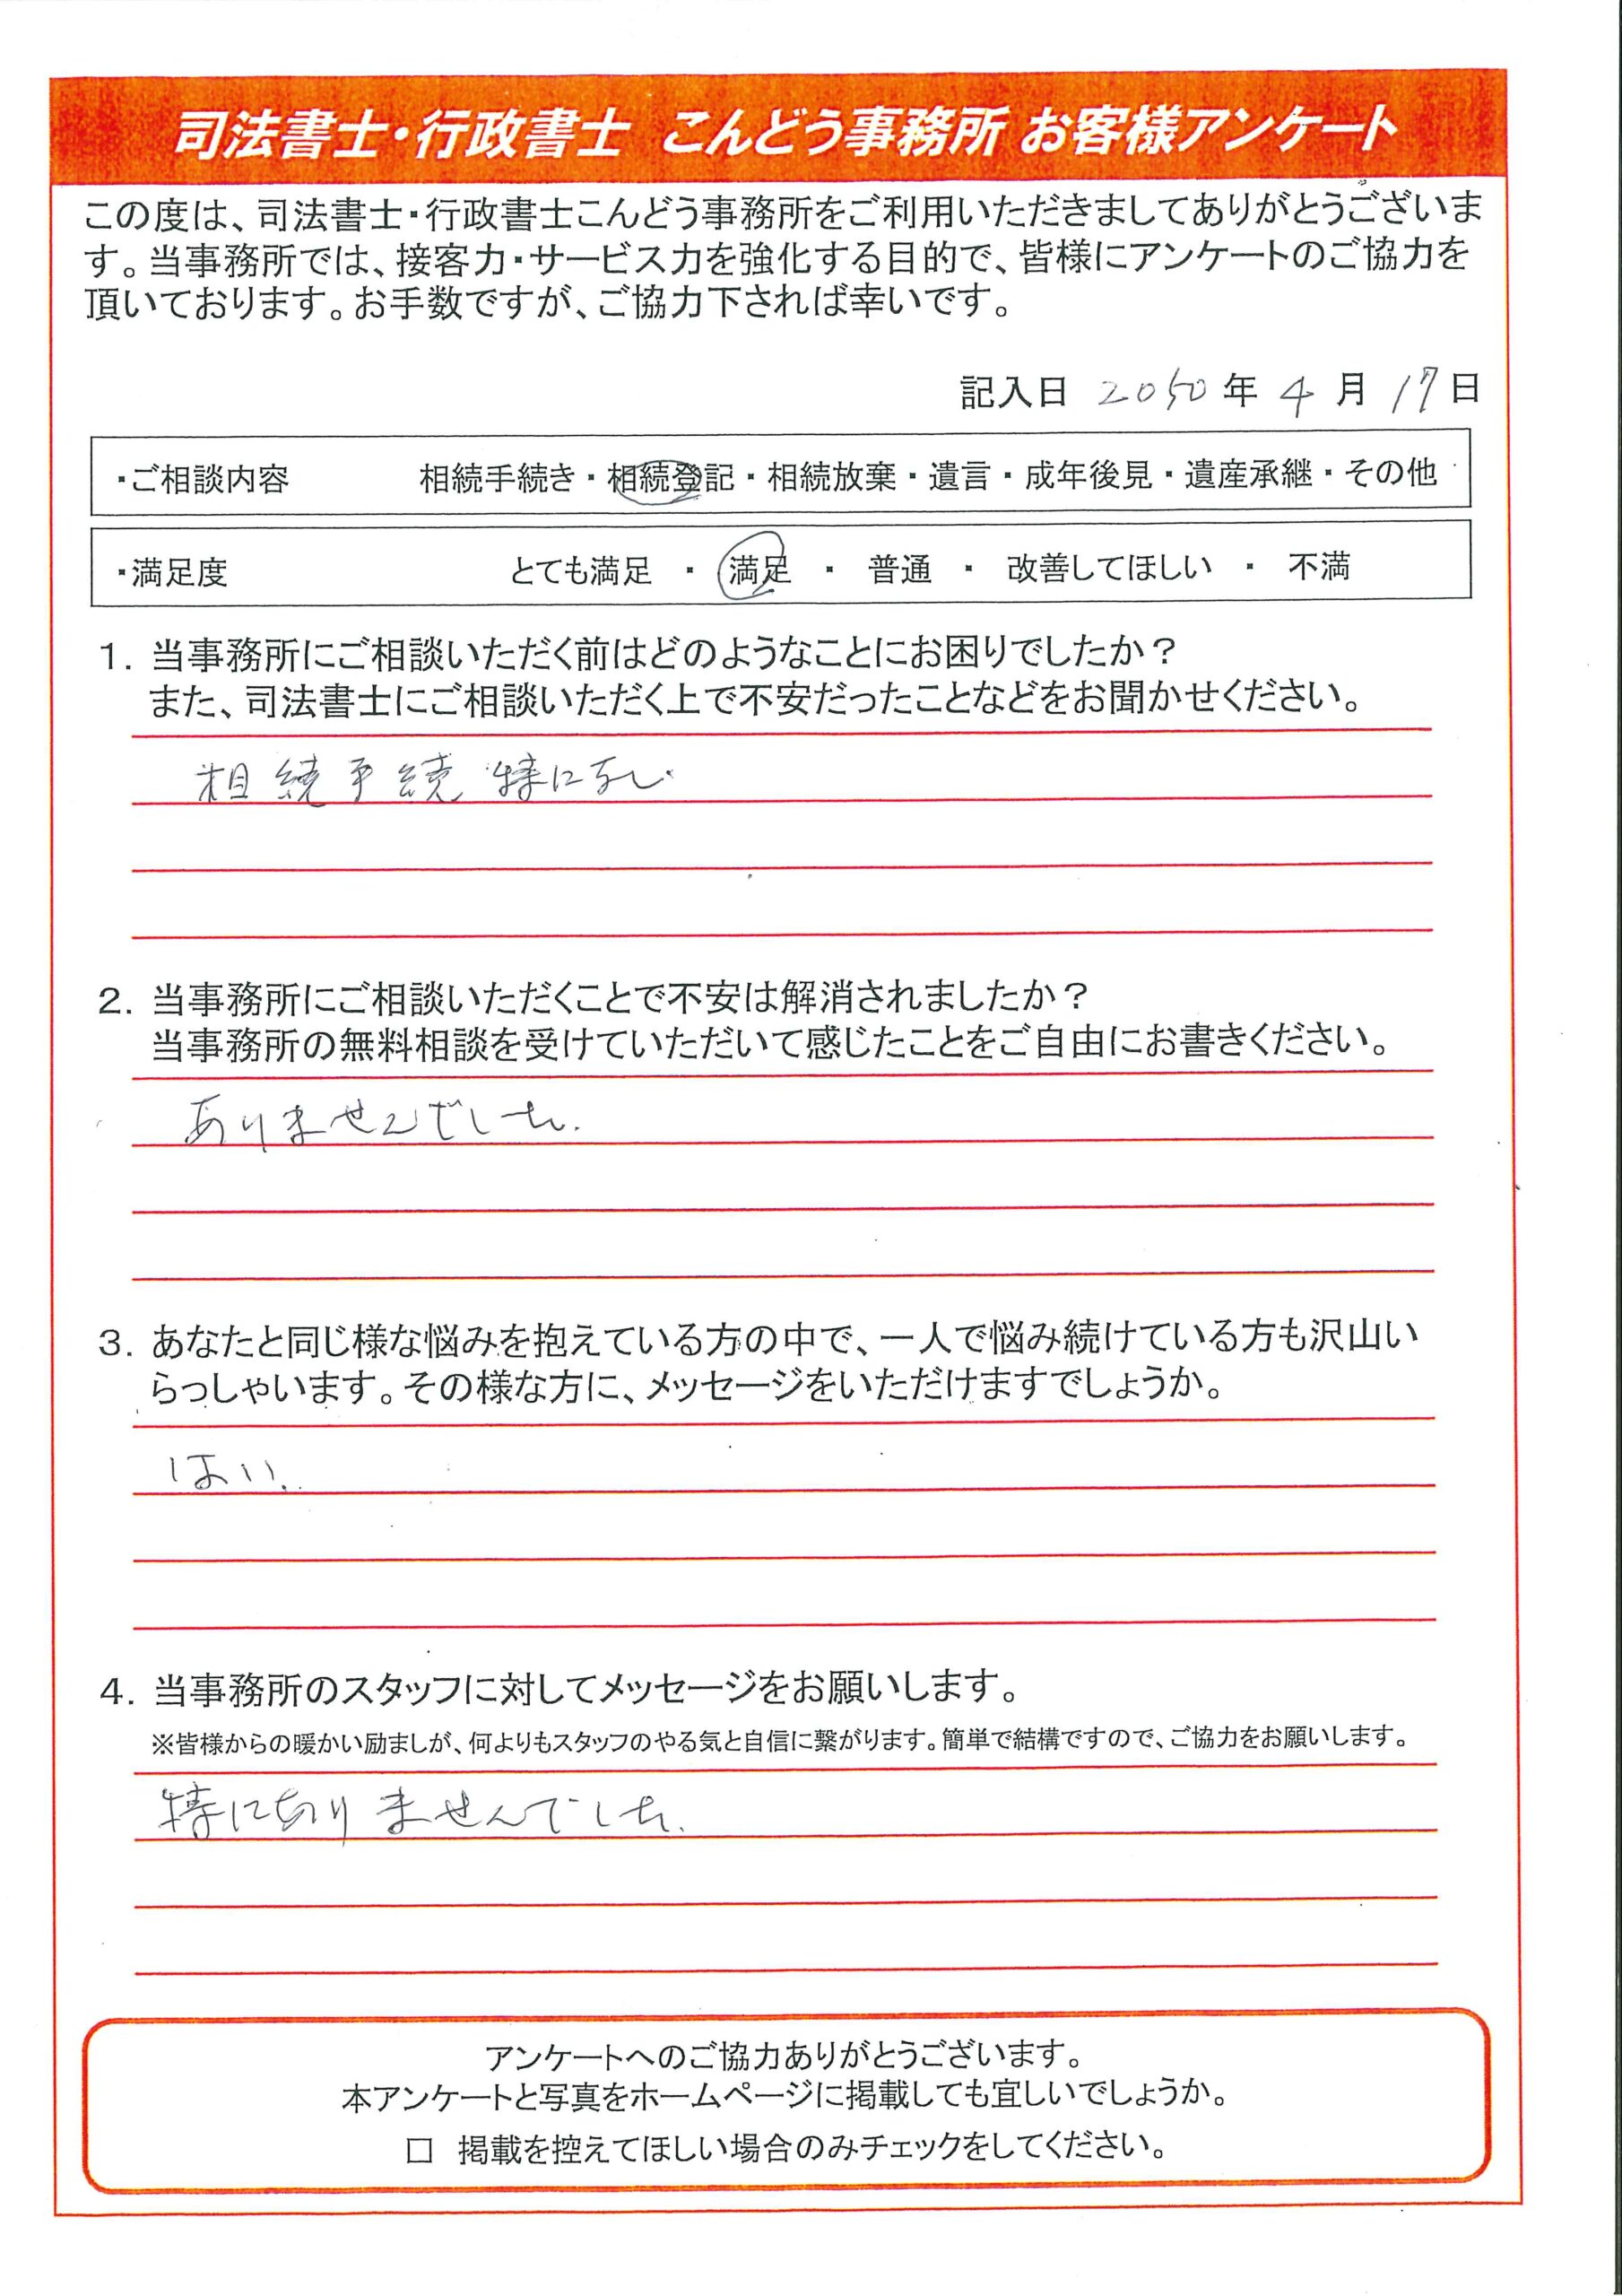 司法書士・行政書士 こんどう事務所 お客様アンケート
この度は、司法書士・行政書士こんどう事務所をご利用いただきましてありがとうございま
す。当事務所では、接客力・サービス力を強化する目的で、皆様にアンケートのご協力を
頂いております。お手数ですが、ご協力下されば幸いです。
記入日 2050年 4月 17日
・ご相談内容 相続手続き・相続登記・相続放棄・遺言・成年後見・遺産承継・その他
・満足度 とても満足 ・ 満足 ・ 普通 ・ 改善してほしい ・ 不満
1. 当事務所にご相談いただく前はどのようなことにお困りでしたか？
また、司法書士にご相談いただく上で不安だったことなどをお聞かせください。
相続手続 特になし
2. 当事務所にご相談いただくことで不安は解消されましたか？
当事務所の無料相談を受けていただいて感じたことをご自由にお書きください。
ありませんでした.
3. あなたと同じ様な悩みを抱えている方の中で、一人で悩み続けている方も沢山い
らっしゃいます。その様な方に、メッセージをいただけますでしょうか。
はい.
4. 当事務所のスタッフに対してメッセージをお願いします。
※皆様からの暖かい励ましが、何よりもスタッフのやる気と自信に繋がります。簡単で結構ですので、ご協力をお願いします。
特にありませんでした.
アンケートへのご協力ありがとうございます。
本アンケートと写真をホームページに掲載しても宜しいでしょうか。
□ 掲載を控えてほしい場合のみチェックをしてください。